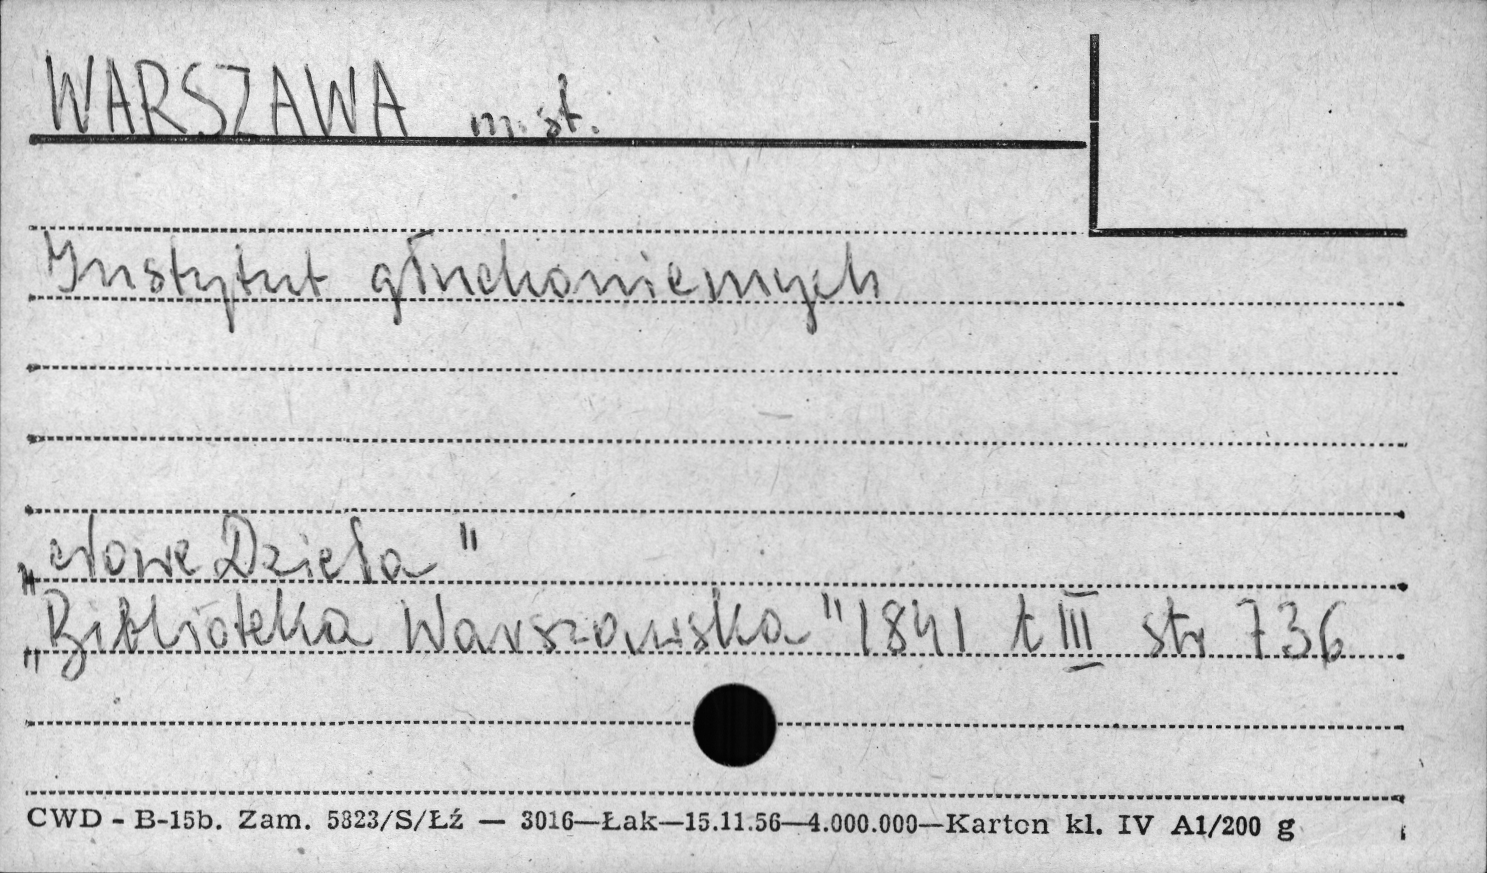 WARSZAWA m. st.
Instytut głuchoniemych
„Nowe Dzieła"
„Biblioteka Warszawska" 1841 t III str 736
CWD - B-15b. Zam. 5823/S/Łź — 3016—Łak—15.11.56—4.000.000—Karton kl. IV A1/200 g